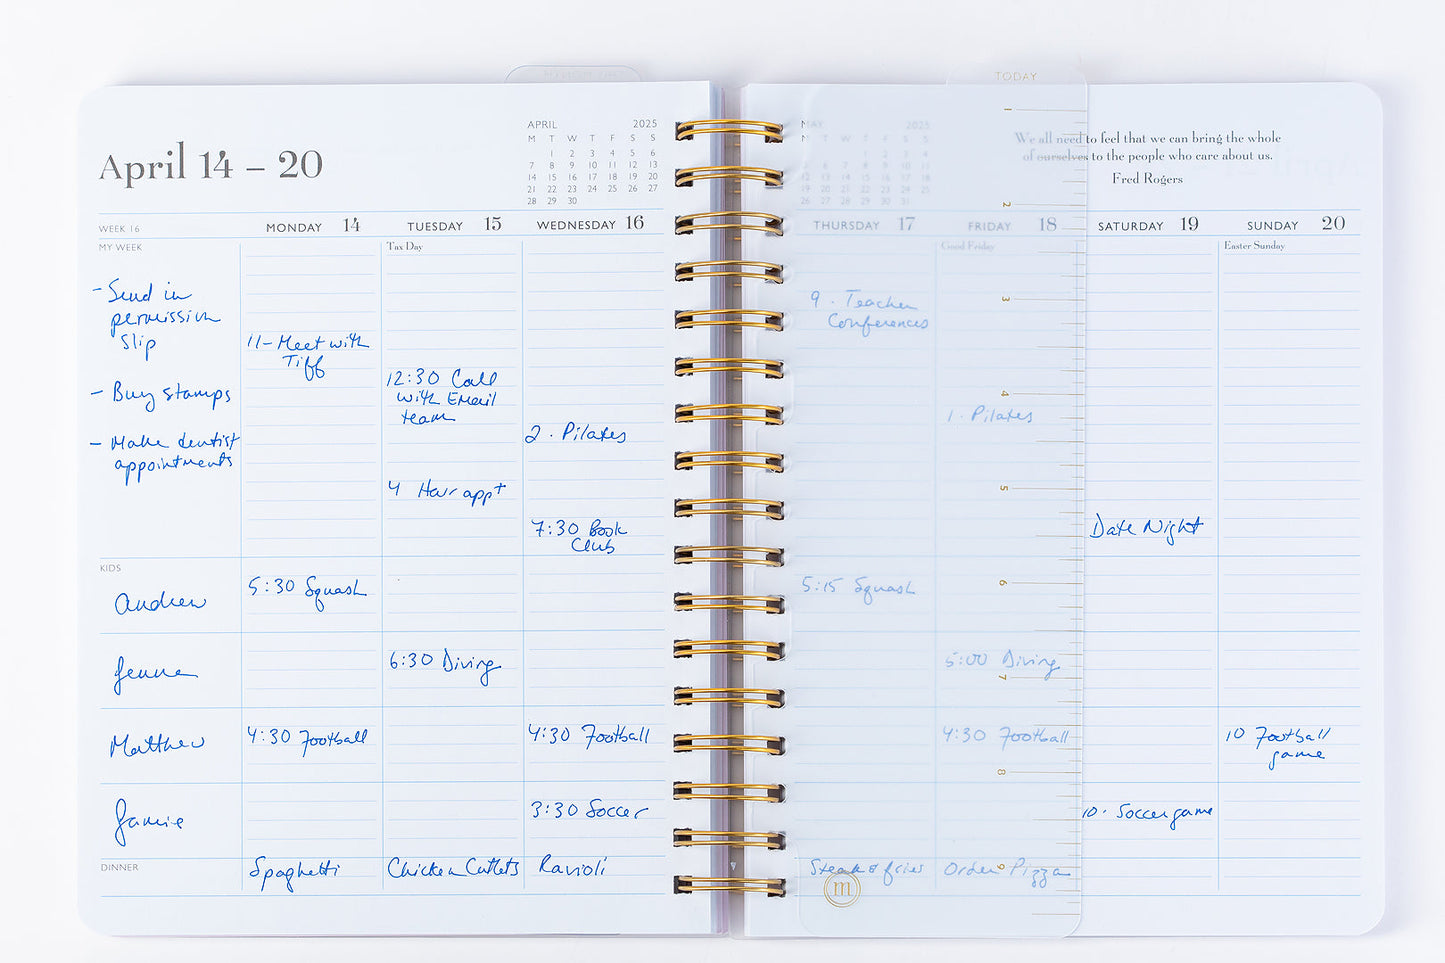 TODAY
April 14 – 20
APRIL 2025
M T W T F S S
1 2 3 4 5 6
7 8 9 10 11 12 13
14 15 16 17 18 19 20
21 22 23 24 25 26 27
28 29 30
MAY 2025
M T W T F S S
1 2 3 4
19 20 21 22 23 24 25
26 27 28 29 30 31
We all need to feel that we can bring the whole
of ourselves to the people who care about us.
Fred Rogers
WEEK 16
MONDAY 14
TUESDAY 15
WEDNESDAY 16
THURSDAY 17
FRIDAY 18
SATURDAY 19
SUNDAY 20
MY WEEK
Tax Day
Good Friday
Easter Sunday
- Send in
permission
Slip
- Buy stamps
- Make dentist
appointments
11 - Meet with
Tiff
12:30 Call
with Email
team
4 Hair appt
2 . Pilates
7:30 Book
Club
9 . Teacher
Conferences
1 . Pilates
Date Night
KIDS
Andrew
5:30 Squash
5:15 Squash
Jenna
6:30 Diving
5:00 Diving
Matthew
4:30 Football
4:30 Football
4:30 Football
10 Football
game
Jamie
3:30 Soccer
10 . Soccer game
DINNER
Spaghetti
Chicken Cutlets
Ravioli
Steak & fries
Order Pizza
1
2
3
4
5
6
7
8
9
m